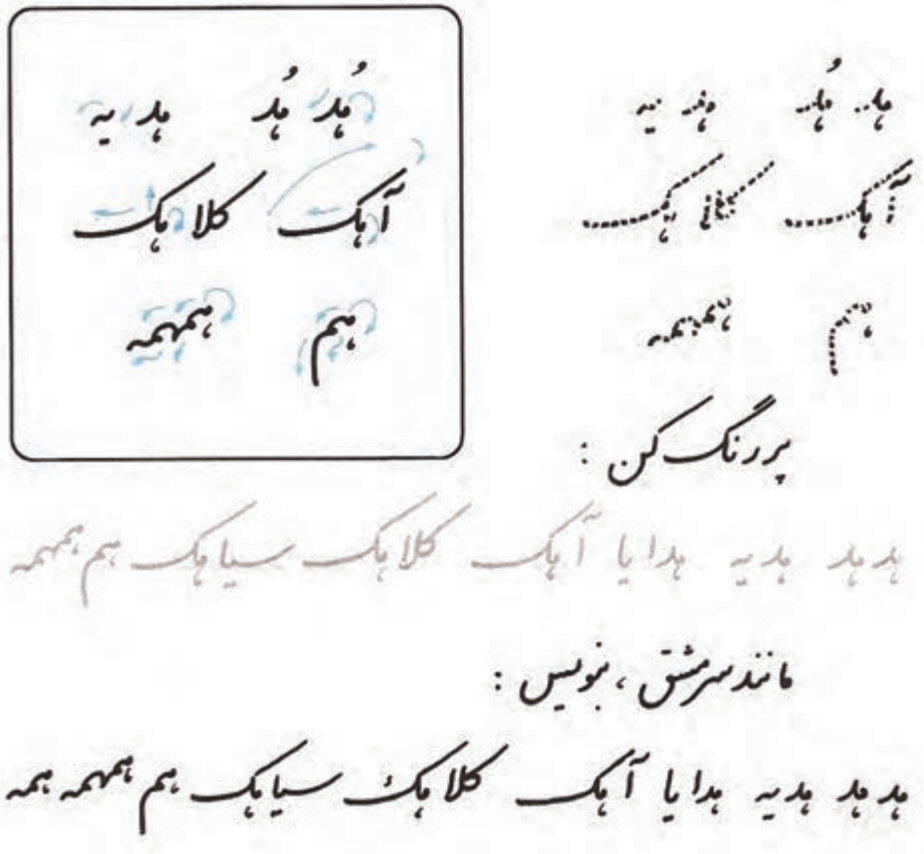 هد هُد هد یه
آهک کلاهک
هم همهمه
هُد هُد هد یه
آهک کلاهک
هم همهمه
پررنگ کن :
هدهد هدیه هدایا آهک کلاهک سیاهک هم همهمه
مانند سرمشق ، بنویس :
هدهد هدیه هدایا آهک کلاهک سیاهک هم همهمه همه